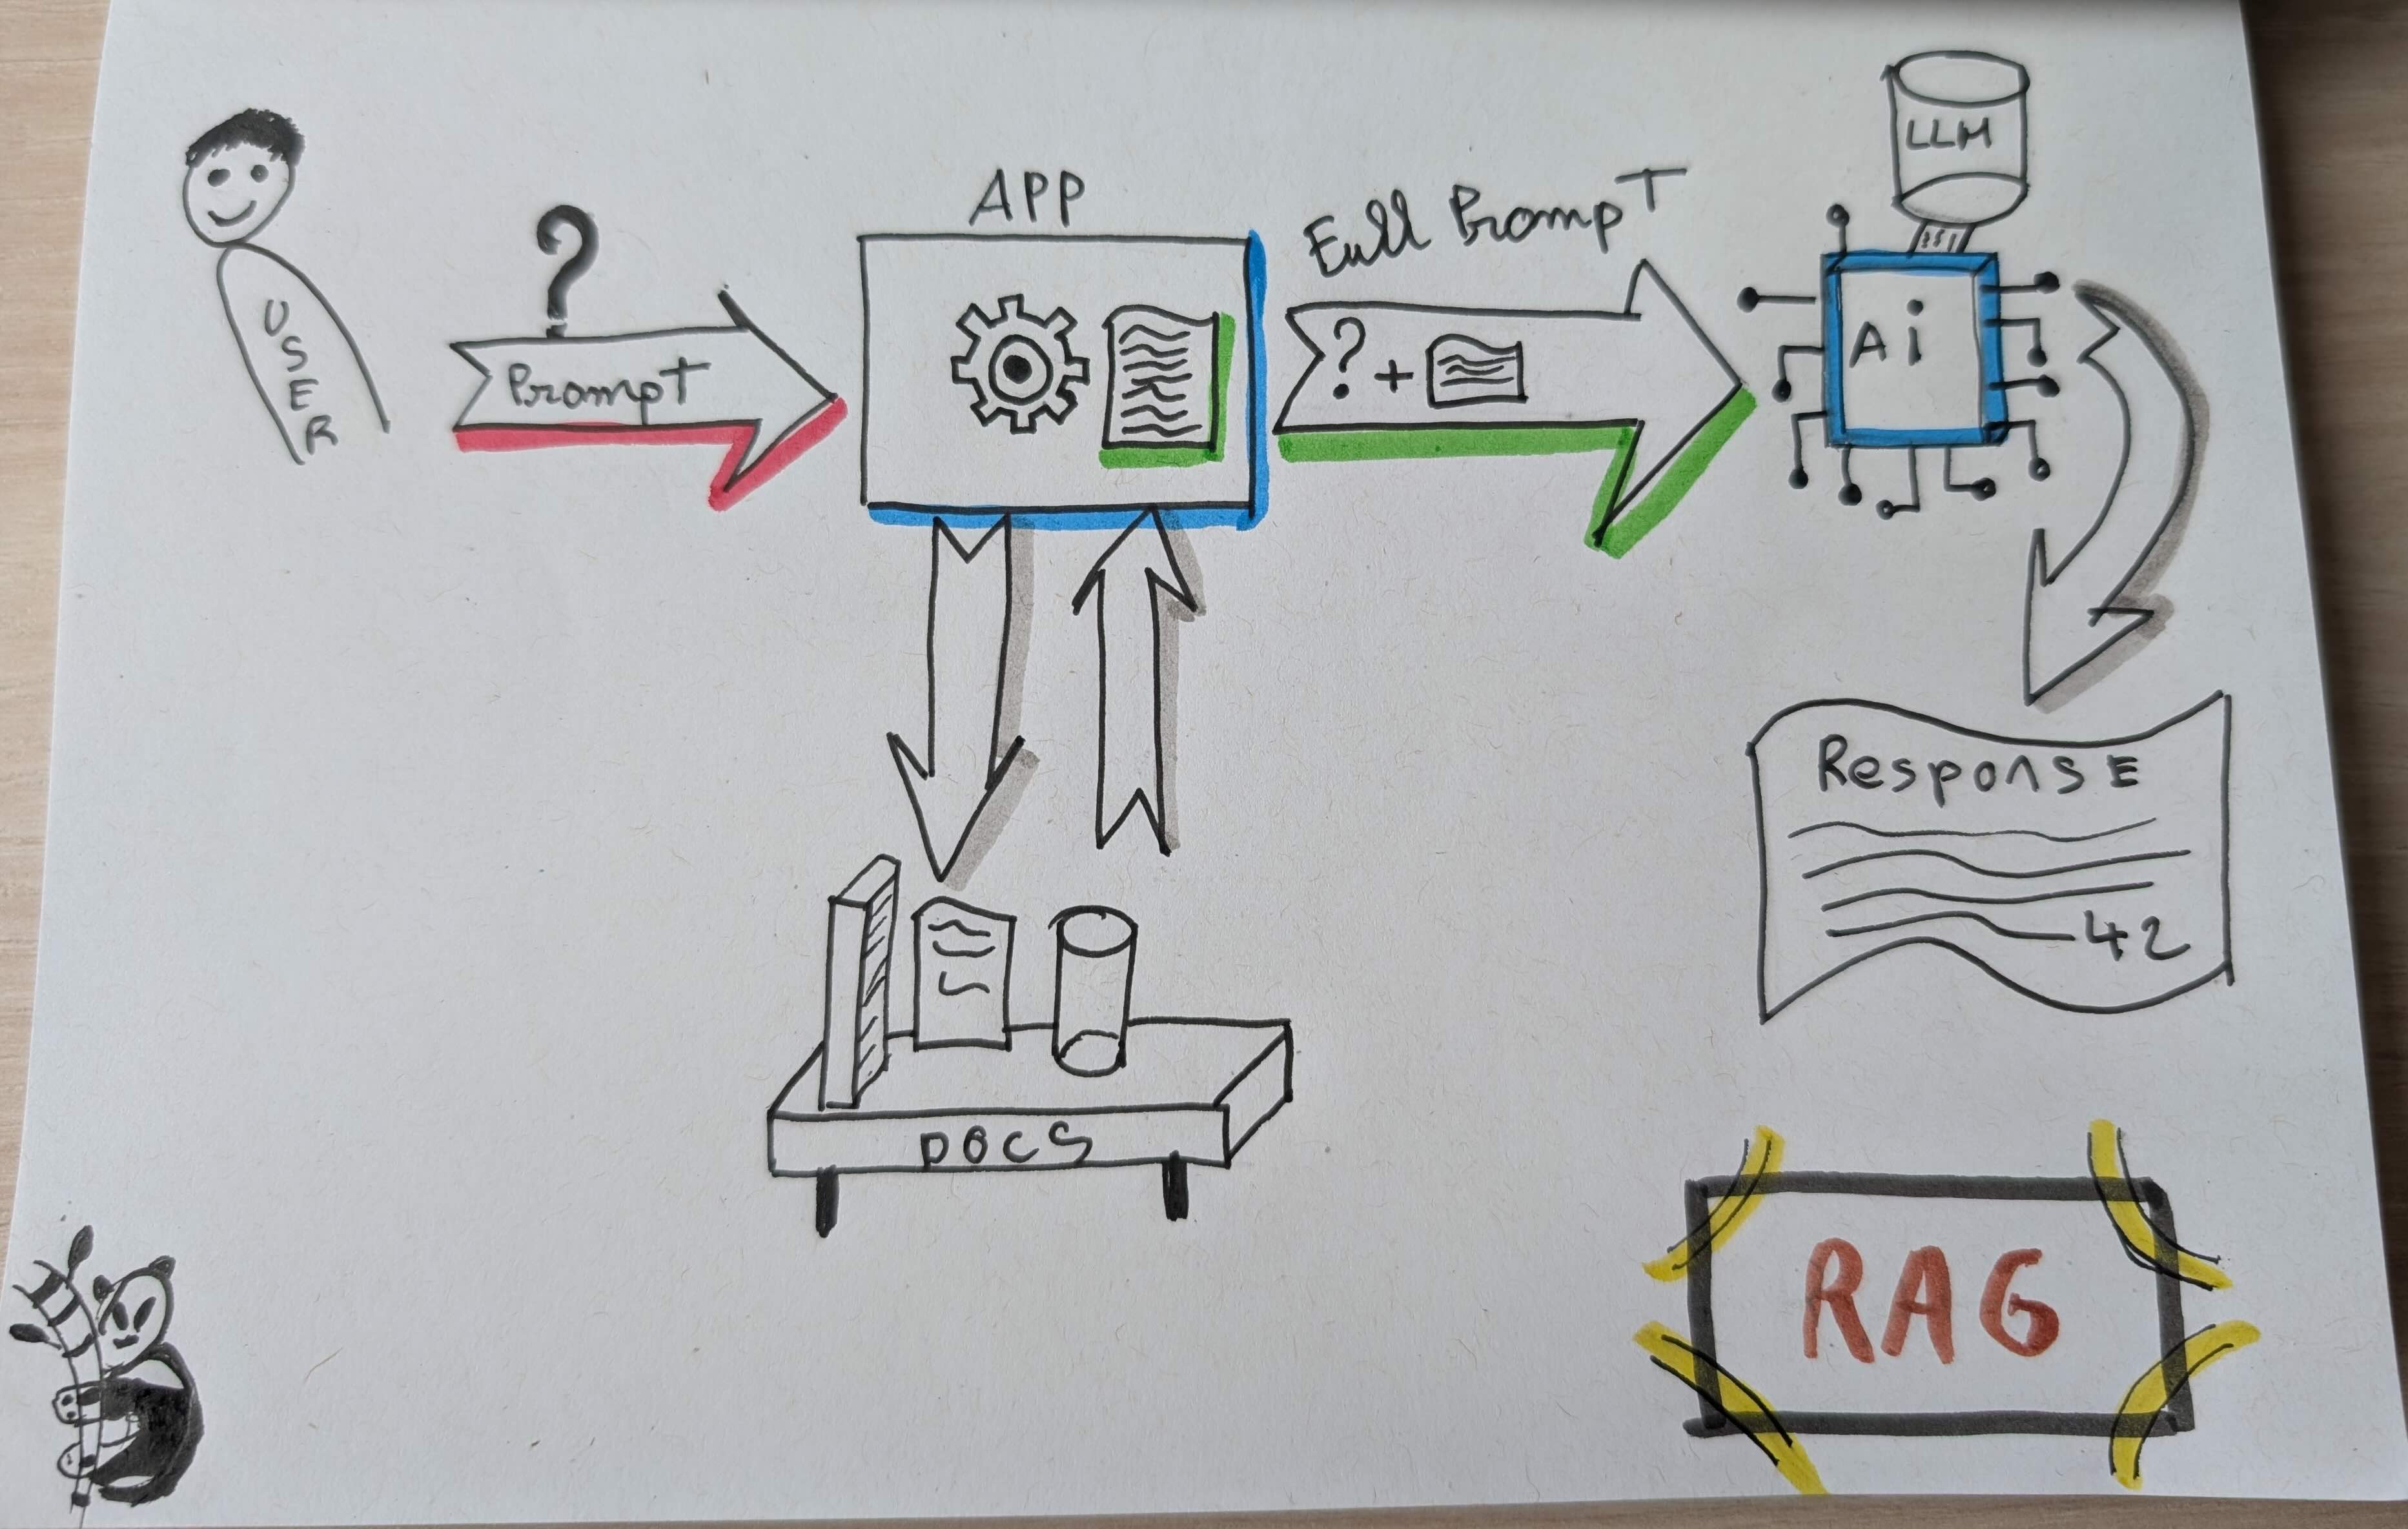 USER
?
Prompt
APP
Full Prompt
? +
LLM
Ai
Response
42
DOCS
RAG